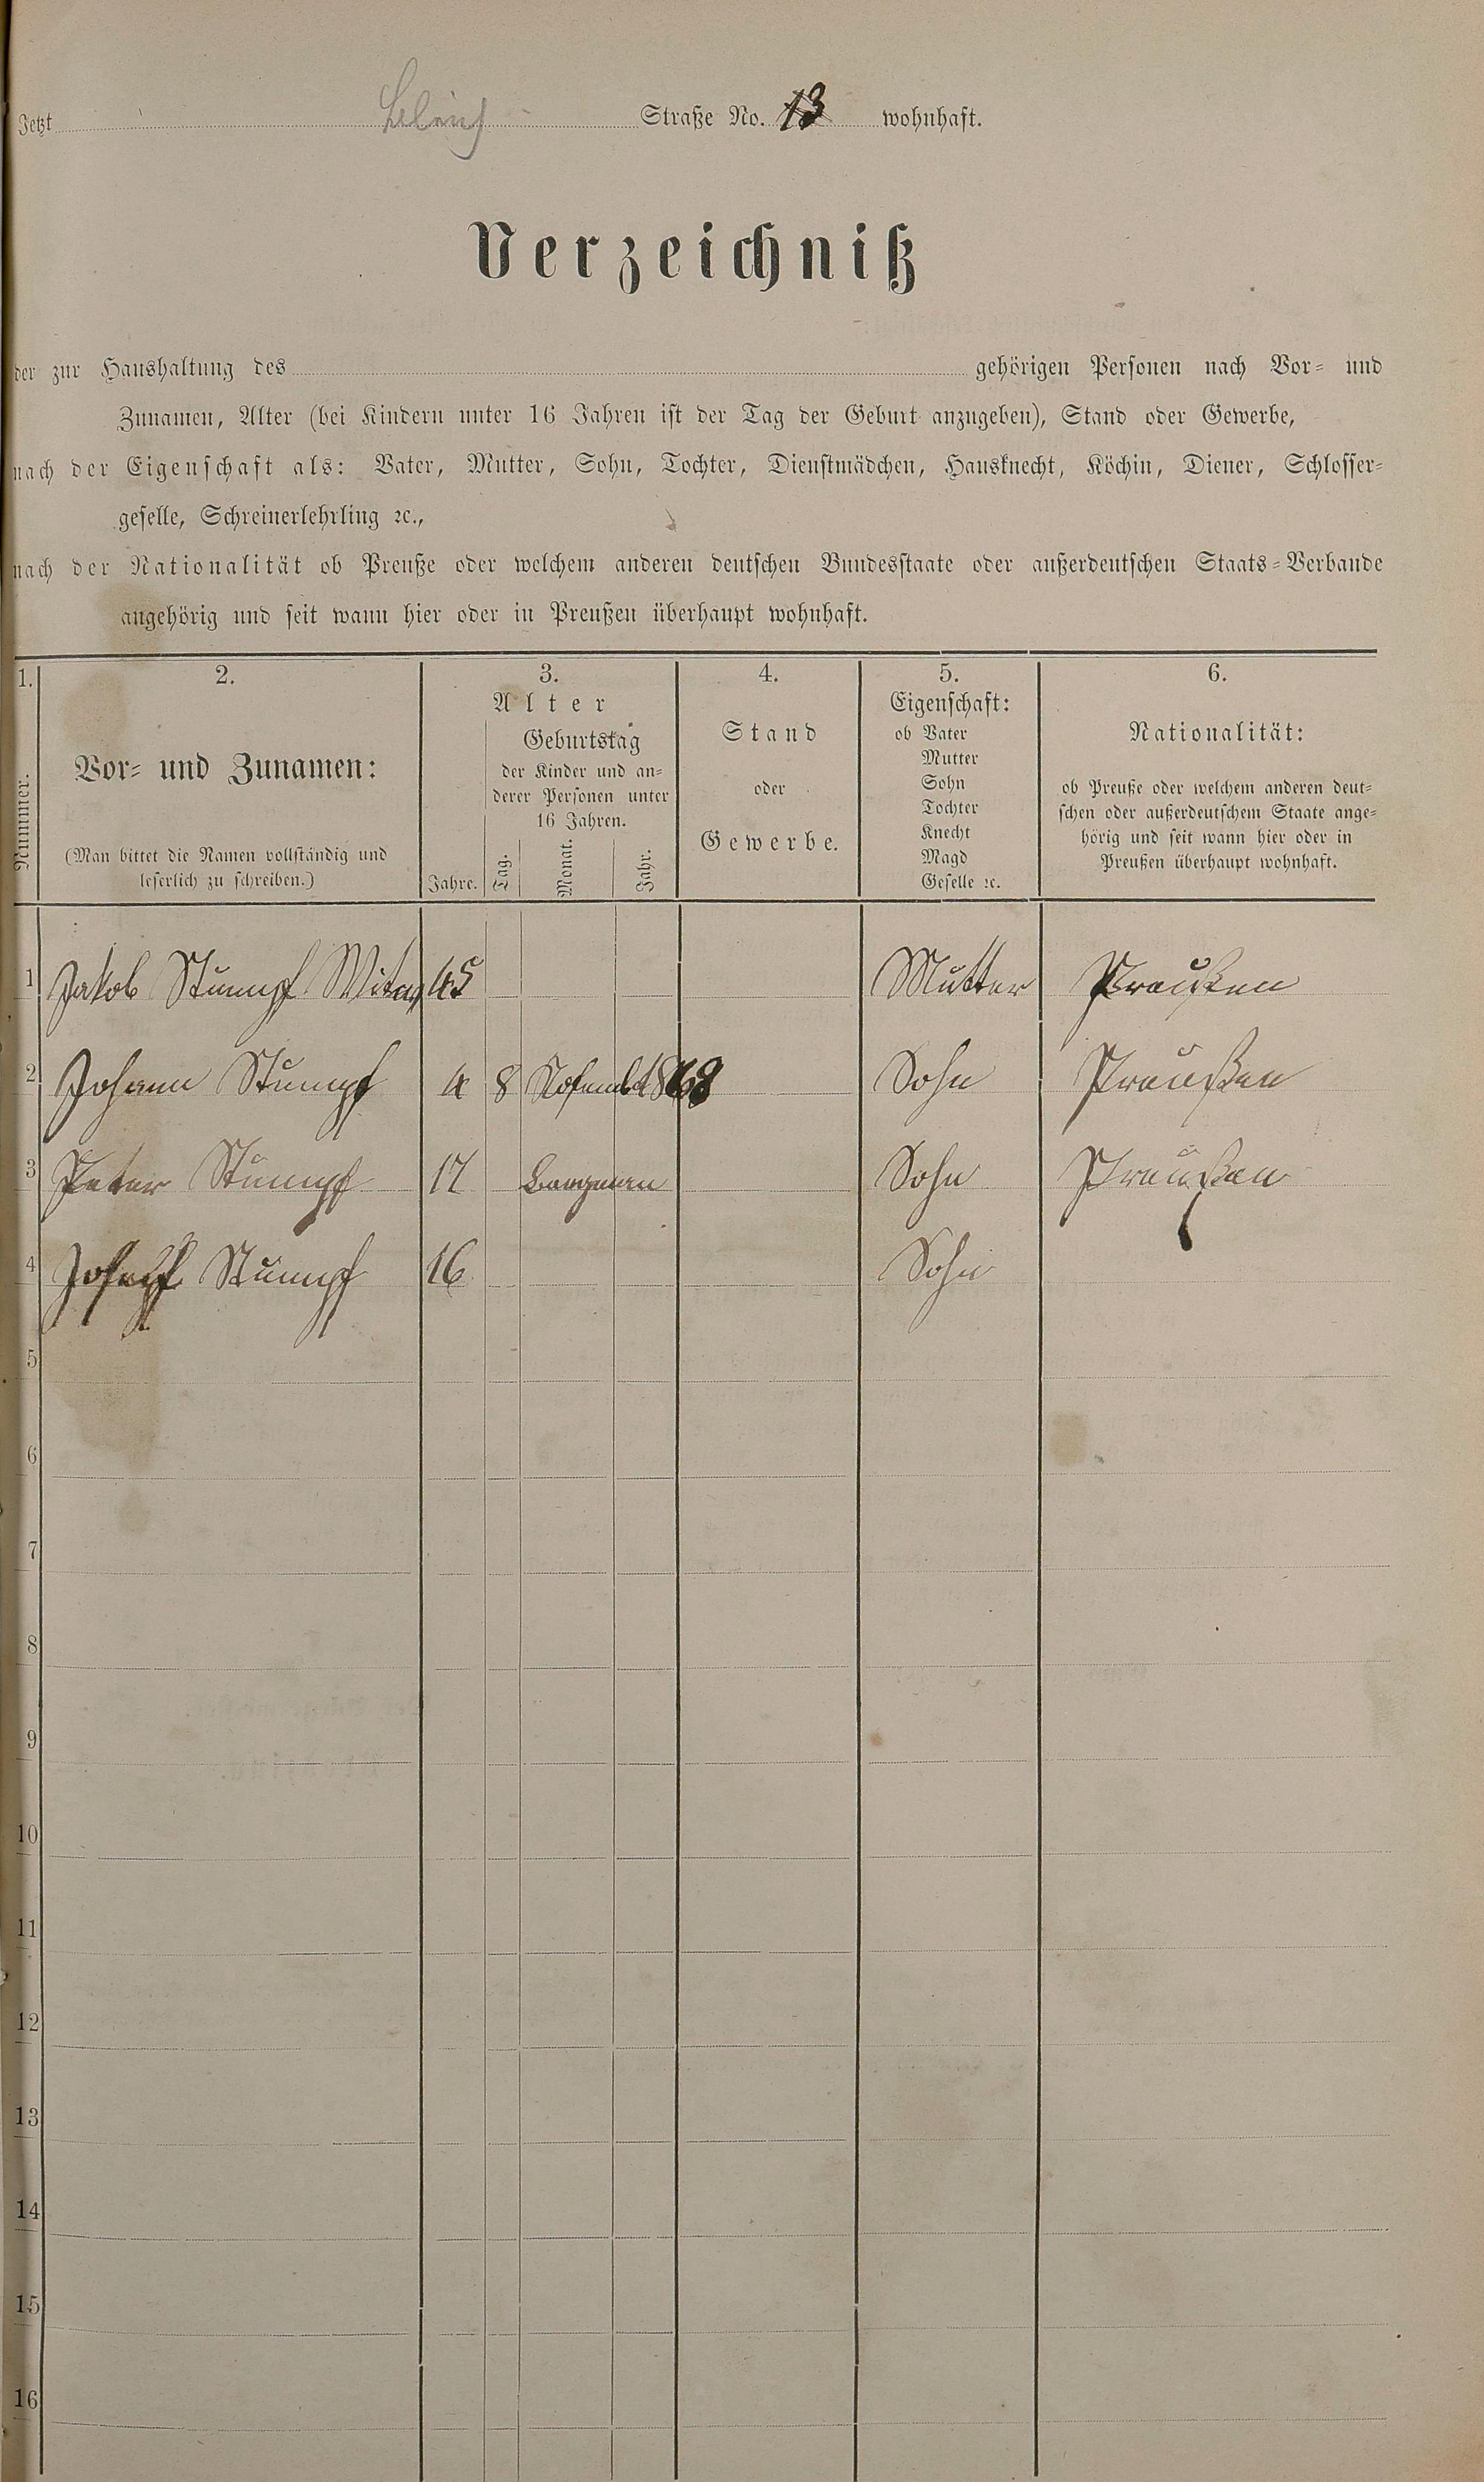 Jetzt Straße No. 13 wohnhaft.
Verzeichniß
der zur Haushaltung des gehörigen Personen nach Vor- und
Zunamen, Alter (bei Kindern unter 16 Jahren ist der Tag der Geburt anzugeben), Stand oder Gewerbe,
nach der Eigenschaft als: Vater, Mutter, Sohn, Tochter, Dienstmädchen, Hausknecht, Köchin, Diener, Schlosser-
geselle, Schreinerlehrling ꝛc.,
nach der Nationalität ob Preuße oder welchem anderen deutschen Bundesstaate oder außerdeutschen Staats-Verbande
angehörig und seit wann hier oder in Preußen überhaupt wohnhaft.
1.
Nummer.
2.
Vor- und Zunamen:
(Man bittet die Namen vollständig und
leserlich zu schreiben.)
3.
Alter
Jahre.
Geburtstag
der Kinder und an-
derer Personen unter
16 Jahren.
Tag. Monat. Jahr.
4.
Stand
oder
Gewerbe.
5.
Eigenschaft:
ob Vater
Mutter
Sohn
Tochter
Knecht
Magd
Geselle ꝛc.
6.
Nationalität:
ob Preuße oder welchem anderen deut-
schen oder außerdeutschem Staate ange-
hörig und seit wann hier oder in
Preußen überhaupt wohnhaft.
1 Jakob Stumpf Witwe 45 Mutter Preußen
2 Johann Stumpf 4 8 Nofemb 1868 Sohn Preußen
3 Peter Stumpf 17 Bergman Sohn Preußen
4 Josepf Stumpf 16 Sohn
5
6
7
8
9
10
11
12
13
14
15
16